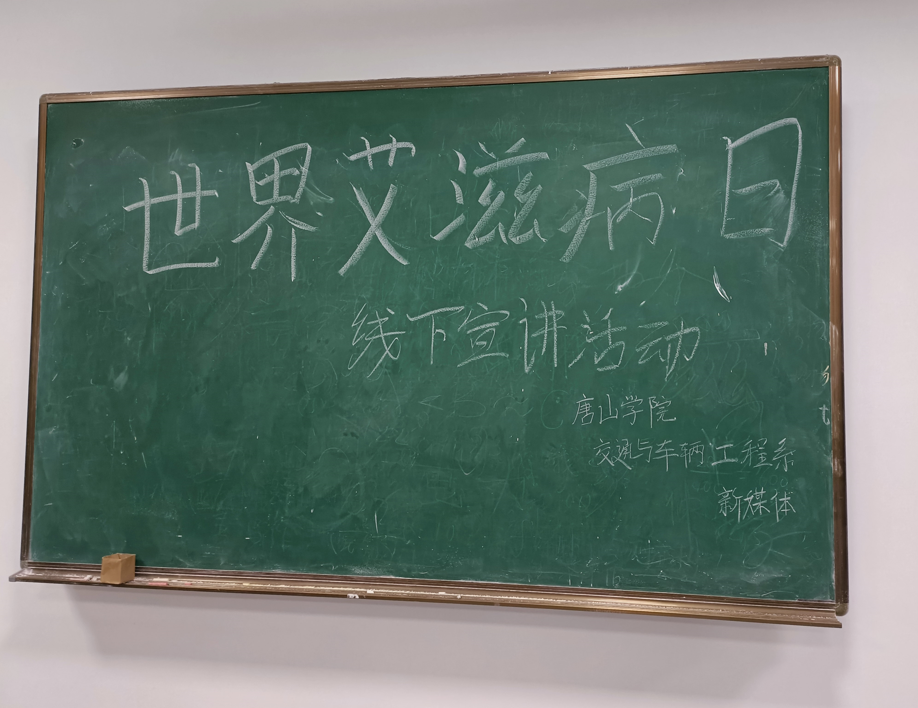 世界艾滋病日
线下宣讲活动
唐山学院
交通与车辆工程系
新媒体